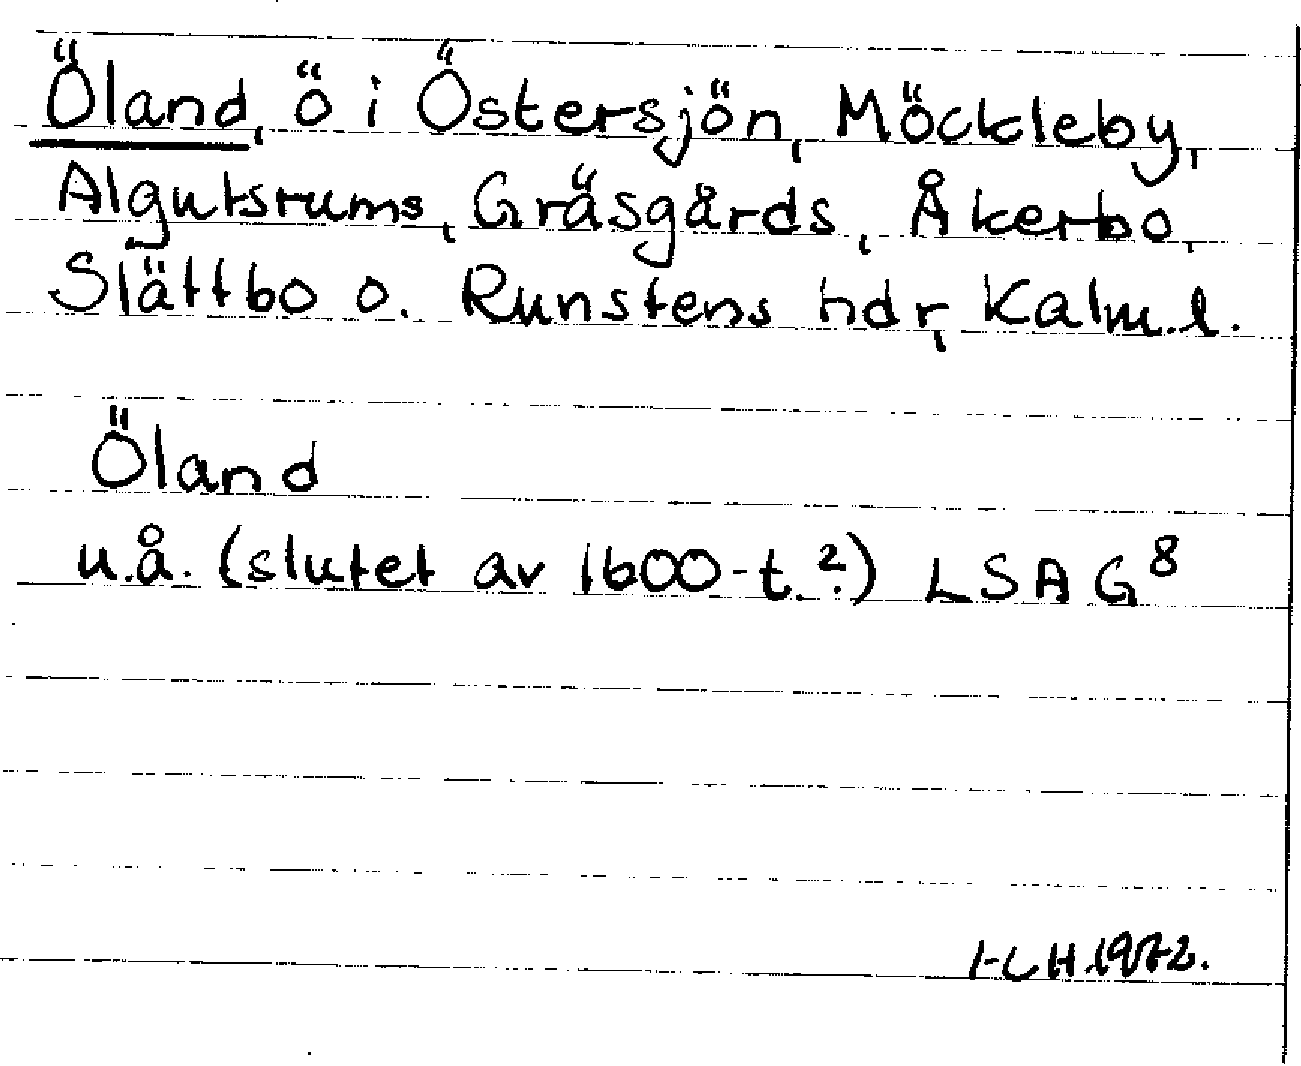 Öland, ö i Östersjön, Möckleby,
Algutsrums, Gräsgårds, Åkerbo,
Slättbo o. Runstens hdr, Kalm. l.
Öland
u.å. (slutet av 1600-t.?) LSA G8
I-L H. 1972.